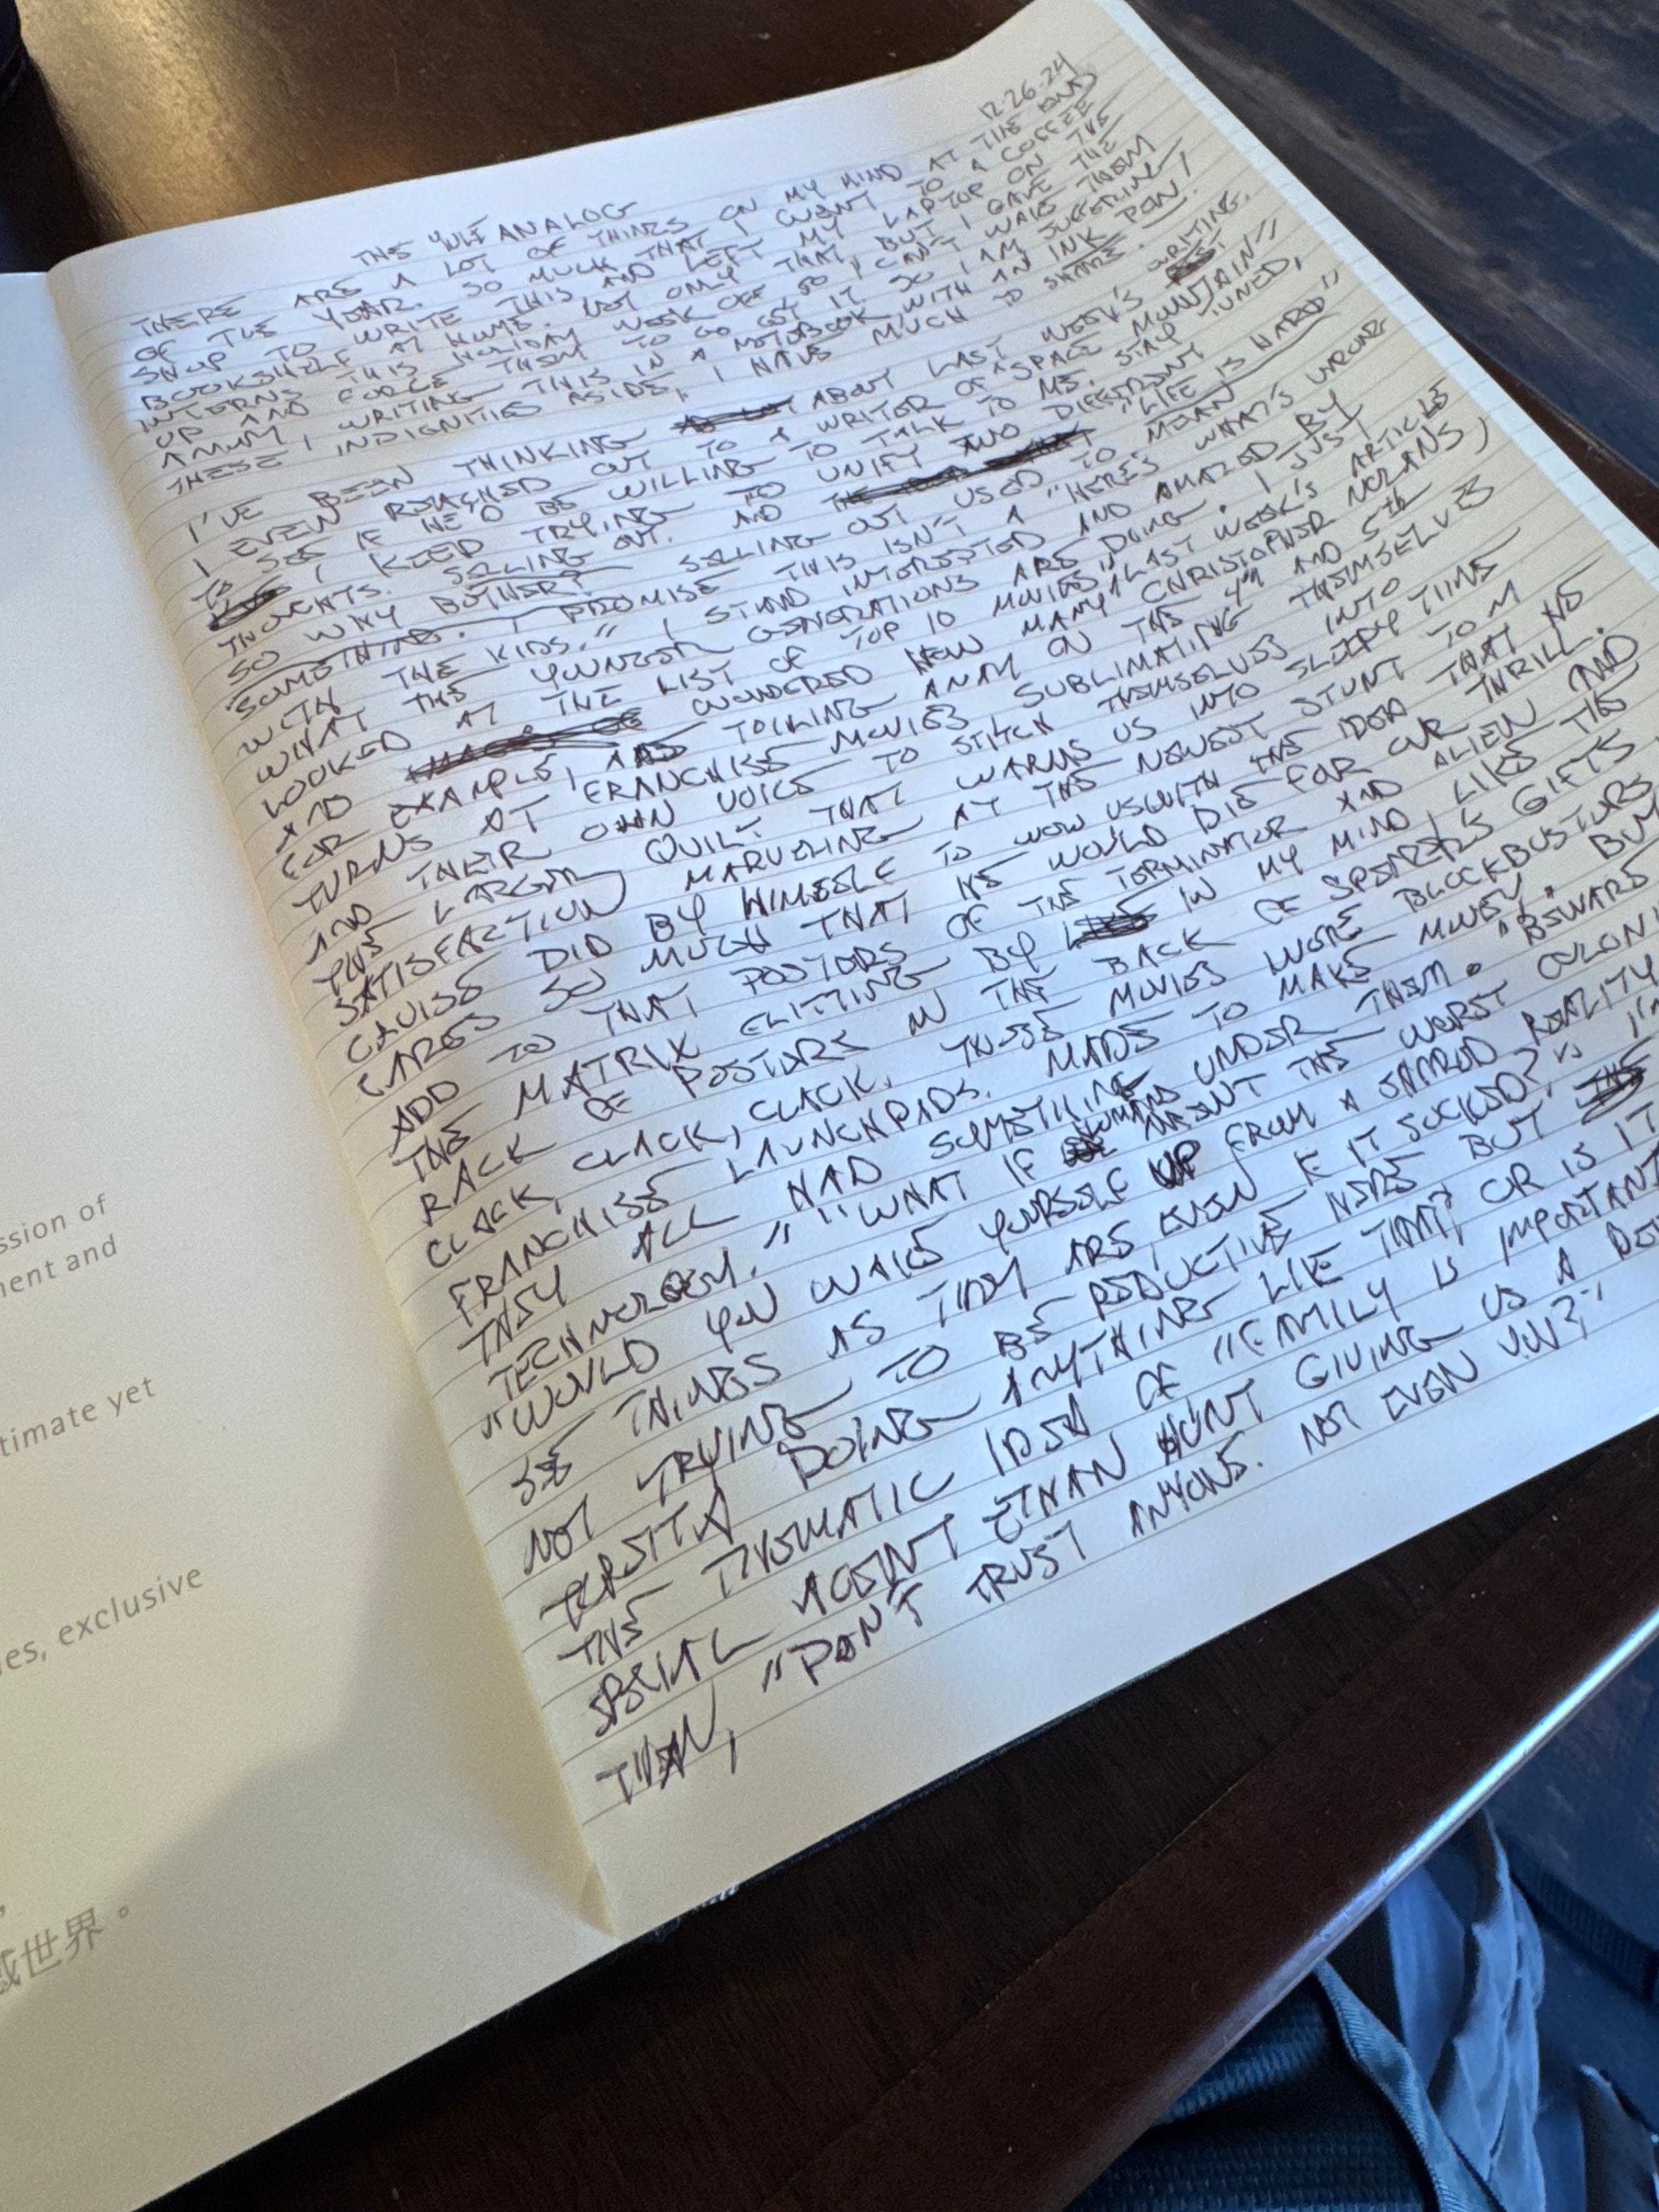 12.26.24
THE YULE ANALOG
THERE ARE A LOT OF THINGS ON MY MIND AT THE END
OF THE YEAR. SO MUCH THAT I WENT TO A COFFEE
SHOP TO WRITE THIS AND LEFT MY LAPTOP ON THE
BOOKSHELF AT HOME. NOT ONLY THAT BUT I GAVE THE
INTERNS THIS HOLIDAY WEEK OFF SO I CAN'T WAKE THEM
UP AND FORCE THEM TO GO GET IT SO I AM SUFFERING,
WRITING THIS IN A NOTEBOOK WITH AN INK PEN!
THESE INDIGNITIES ASIDE, I HAVE MUCH TO SHARE.
I'VE BEEN THINKING ABOUT LAST WEEK'S WRITING.
I EVEN REACHED OUT TO A WRITER OF "SPACE MOUNTAIN"
TO SEE IF HE'D BE WILLING TO TALK TO ME. STAY TUNED.
I KEEP TRYING TO UNIFY TWO DIFFERENT
THOUGHTS. SELLING OUT. AND "LIFE IS HARD"
SO WHY BOTHER? SELLING OUT USED TO MEAN
SOMETHING. I PROMISE THIS ISN'T A "HERE'S WHAT'S WRONG
WITH THE KIDS." I STAND INTERESTED AND AMAZED BY
WHAT THE YOUNGER GENERATIONS ARE DOING. I JUST
LOOKED AT THE LIST OF TOP 10 MOVIES IN LAST WEEK'S ARTICLE
AND WONDERED HOW MANY CHRISTOPHER NOLANS,
FOR EXAMPLE, ARE TOILING AWAY ON THE 4TH AND 5TH
TURNS AT FRANCHISE MOVIES SUBLIMATING THEMSELVES
AND THEIR OWN VOICE TO STITCH THEMSELVES INTO
THE LARGER QUILT THAT WARMS US INTO SLEEPY TIME
SATISFACTION MARVELING AT THE NEWEST STUNT TOM
CRUISE DID BY HIMSELF TO WOW US WITH THE IDEA THAT HE
CARES SO MUCH THAT HE WOULD DIE FOR OUR THRILL.
ADD TO THAT POSTERS OF THE TERMINATOR AND ALIEN AND
THE MATRIX FLITTING BY IN MY MIND, LIKE THE
RACK OF POSTERS IN THE BACK OF SPENCER'S GIFTS
CLACK, CLACK, CLACK. THOSE MOVIES WERE BLOCKBUSTERS
FRANCHISE LAUNCHPADS. MADE TO MAKE MONEY. BUT
THEY ALL HAD SOMETHING UNDER THEM. "BEWARE
TECHNOLOGY." "WHAT IF HUMANS MEANT THE WORST
"WOULD YOU WAKE YOURSELF UP FROM A SHARED REALITY
SEE THINGS AS THEY ARE, EVEN IF IT SUCKED?" I'M
NOT TRYING TO BE REDUCTIVE HERE BUT IS
DOING ANYTHING LIKE THAT? OR IS IT
THE THEMATIC IDEA OF "FAMILY IS IMPORTANT
SPECIAL AGENT ETHAN HUNT GIVING US A
THAN, "DON'T TRUST ANYONE. NOT EVEN YOU?"
ssion of
ment and
timate yet
es, exclusive
戲世界。